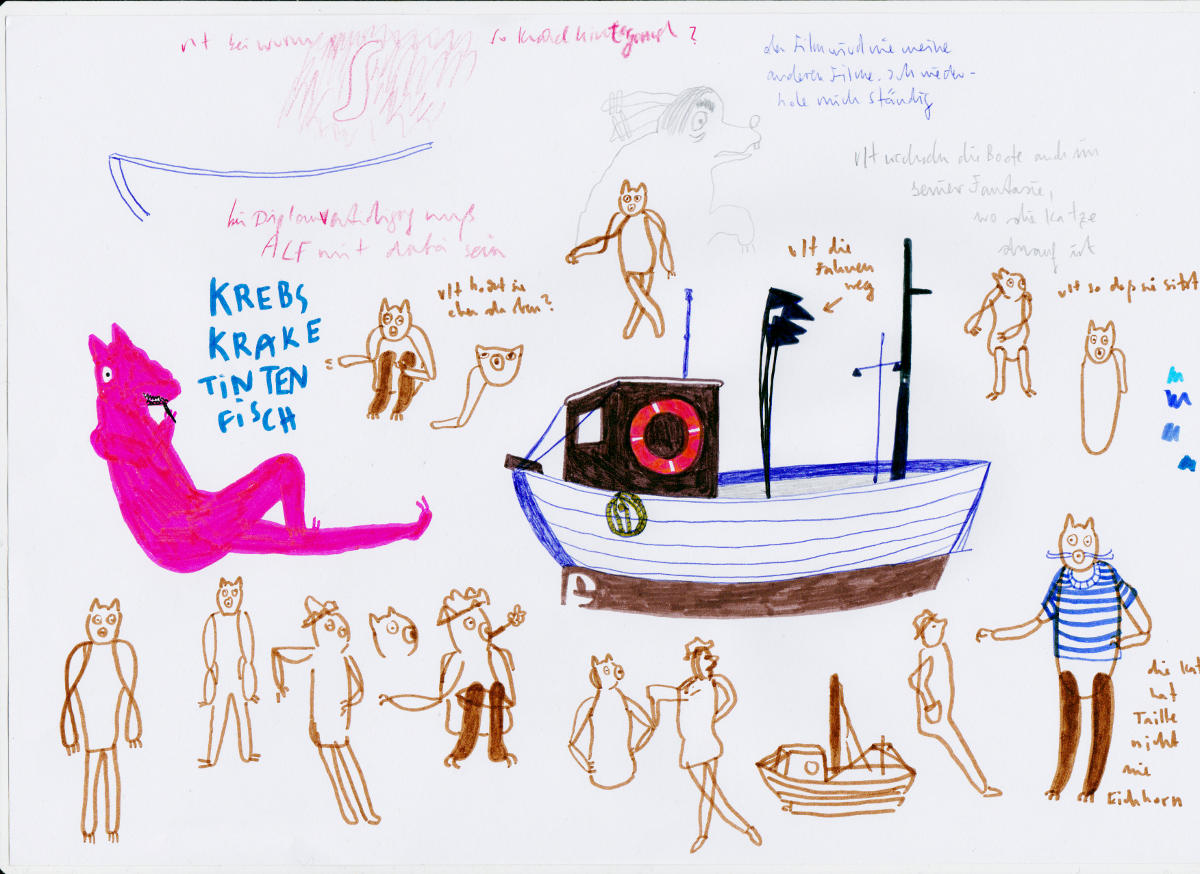 vlt bei wurm
so hintergrund ?
der Film wird wie meine
anderen Filme. Ich wieder-
hole mich ständig
vlt wechseln die Boote auch in
seiner Fantasie,
wo die Katze
drauf ist
bei Diplomverteidigung muß
ALF mit dabei sein
KREBS
KRAKE
TINTEN
FISCH
vlt sie
eher
vlt die
Fahnen
weg
vlt so daß sie sitzt
die Kat
hat
Taille
nicht
wie
Eichhorn